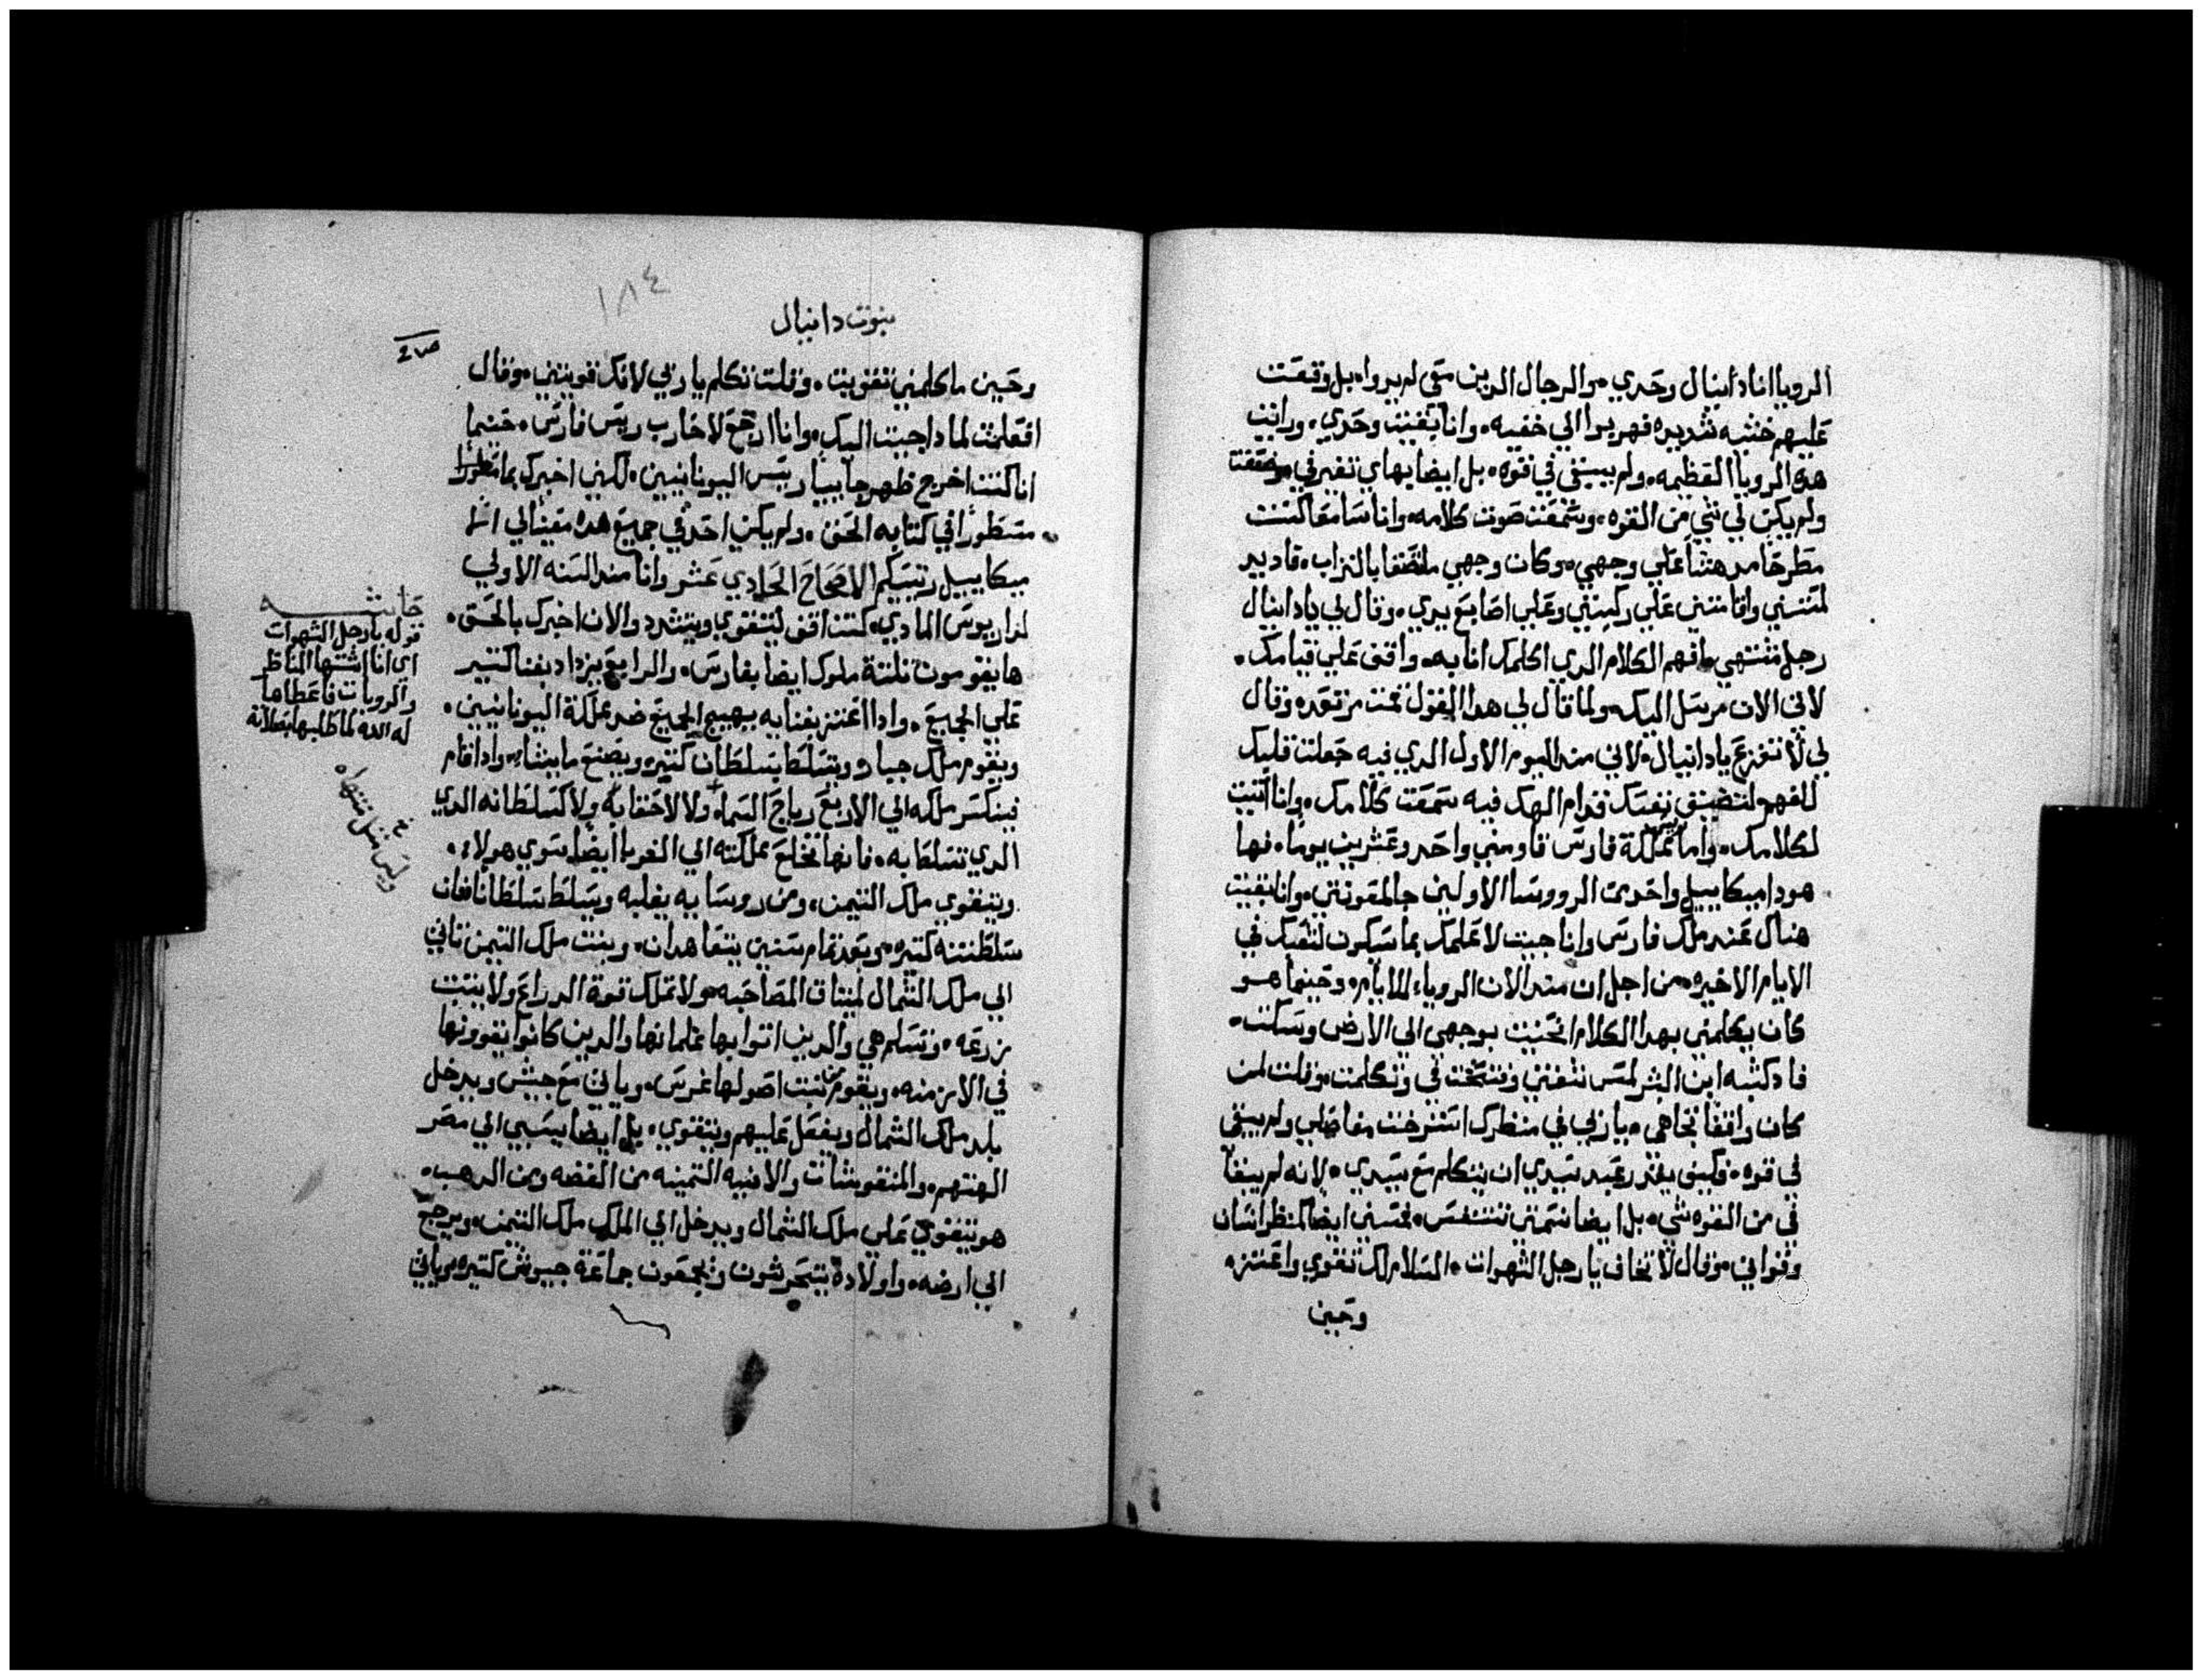 الرويا انا دانيال وحدي والرجال الدين معي لم يروا بل وقعت
عليهم خشيه شديده فهربوا الي خفيه وانا بقيت وحدي ورايت
هده الرويا العظيمه ولم يبقي في قوه بل ايضا بهاي تغير في وضعفت
ولم يكن لي شي من القوه وسمعت صوت كلامه وانا سامعا كنت
مطرحا مدهشا علي وجهي وكان وجهي ملتصقا بالتراب فاد يد
لمستني واقامتني علي ركبتي وعلي اصابع يدي وقال لي يا دانيال
رجل مشتهي افهم الكلام الدي اكلمك انا به واقف علي قيامك
لاني الان مرسل اليك ولما قال لي هدا القول قمت مرتعده وقال
لي لا تفزع يا دانيال لاني مند اليوم الاول الدي فيه جعلت قلبك
للفهم لتضيق نفسك قدام الهك فيه سمعت كلامك وانا اتيت
لكلامك واما مملكة فارس قاومني واحد وعشرين يوما فها
هودا ميكاييل واحدي الرووسا الاولين جا لمعونتي وانا بقيت
هناك عند ملك فارس وانا جيت لاعلمك بما سيكون لشعبك في
الايام الاخيره من اجل ان مند الان الرويا الايام وحينما هو
كان يكلمني بهدا الكلام انحنيت بوجهي الي الارض وسكت
فاد كشبه ابن البشر لمس شفتي وفتحت في وتكلمت وقلت لمن
كان واقفا تجاهي يا ربي في منظرك استرخت مفاصلي ولم يبقي
في قوه فكيف يقدر عبد سيدي ان يتكلم مع سيدي لانه لم يبقا
في من القوه شي بل ايضا نسمتي تنتفس فمسني ايضا كمنظر انسان
وقواني وقال لا تخاف يا رجل الشهوات السلام لك تقوي واعتزه
وحين
١٨٤
نبوت دانيال
وحين ما كلمني تقويت وقلت تكلم يا ربي لانك قويتني وقال
افعلمت لمادا جيت اليك وانا ارجع لاحارب ريس فارس حينما
انا كنت اخرج ظهر جاييا ريس اليونانيين لكني اخبرك بما
مسطورا في كتابه الحق ولم يكن احد في جميع هده معينا لي الا
ميكاييل ريسكم الاصحاح الحادي عشر وانا مند السنه الاولي
لداريوس المادي كنت اقف ليتقوي ويتشدد والان اخبرك بالحق
ها يقومون تلتة ملوك ايضا بفارس والرابع يزداد بغنا كتير
علي الجميع وادا اعتز بغنايه يهيج الجميع ضد مملكة اليونانيين
ويقوم ملك جبار ويتسلط بسلطان كتيره ويصنع ما يشا وادا قام
ينكسر ملكه الي الاربع رياح السما ولا لاعقابه ولا كسلطانه الدي
الدي تسلط به فانها تخلع مملكته الي الغربا ايضا سوي هولاء
ويتقوي ملك التيمن ومن روسايه يغلبه ويسلط سلطانا فان
سلطنته كتيره وبعد تمام سنين يتعاهدان وبنت ملك التيمن تاتي
الي ملك الشمال لميتاق المصاحبه ولا تملك قوة الدراع ولا يتبت
زرعه وتسلم هي والدين اتوا بها غلمانها والدين كانوا يقوونها
في الازمنه ويقوم من نبت اصولها غرس وياتي مع جيش ويدخل
بلد ملك الشمال ويفعل عليهم ويتقوي بل ايضا يسبي الي مصر
الهتهم والمنقوشات والانيه التمينه من الفضه ومن الدهب
هو يتقوي علي ملك الشمال ويدخل الي الملك ملك التيمن ويرجع
الي ارضه واولاده يتحرشون ويجمعون جماعة جيوش كتيره وياتي
حاشيه
قوله يا رجل الشهوات
اي انا اشتها المناظر
والرويات فاعطاها
له الله لما طلبها
وليس مثل مشتهاه